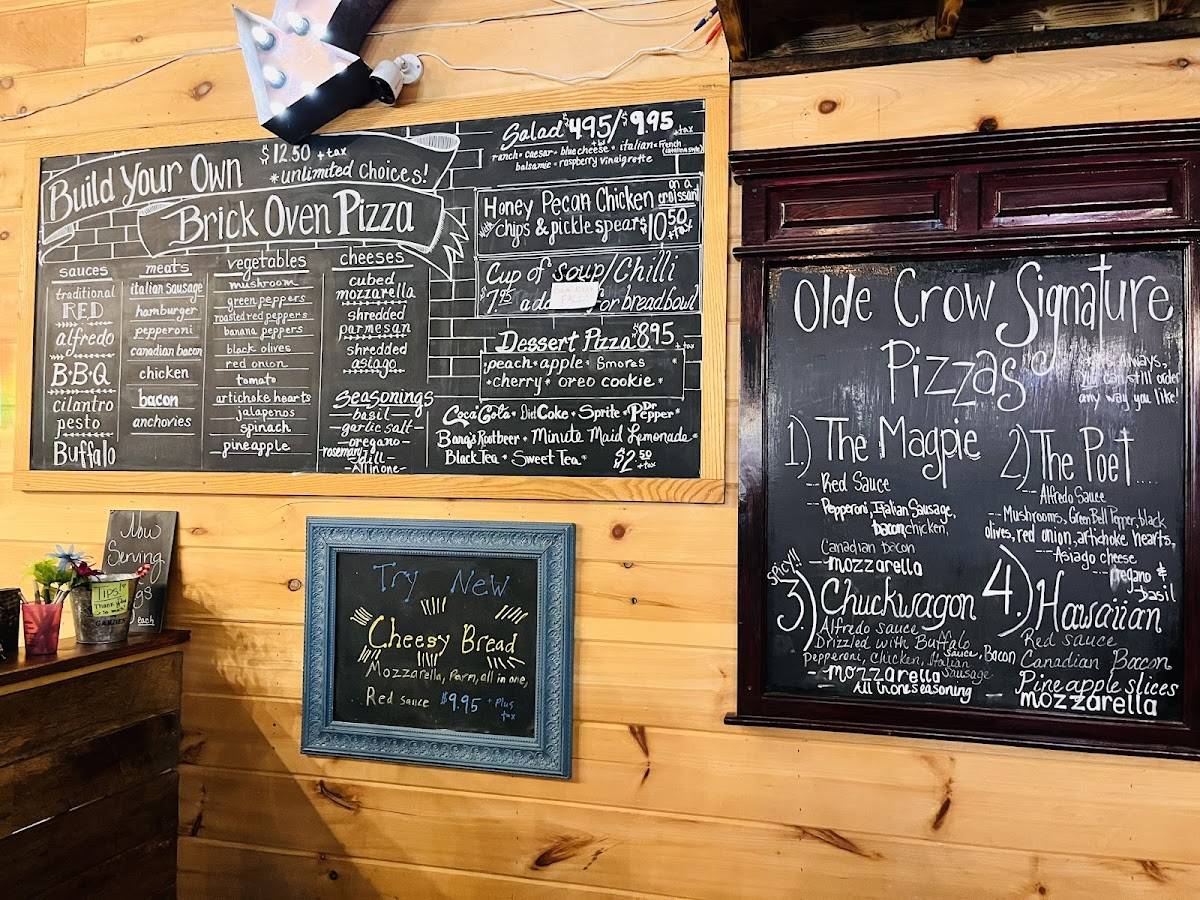 Build Your Own
$12.50 +tax
*unlimited Choices!
Brick Oven Pizza
sauces
traditional
RED
alfredo
B·B·Q
cilantro
pesto
Buffalo
meats
italian sausage
hamburger
pepperoni
canadian bacon
chicken
bacon
anchovies
vegetables
mushroom
green peppers
roasted red peppers
banana peppers
black olives
red onion
tomato
artichoke hearts
jalapenos
spinach
pineapple
cheeses
cubed
mozzarella
shredded
parmesan
shredded
asiago
Seasonings
basil
garlic salt
oregano
rosemary
dill
All in one
Salad $4.95/$9.95 +tax
ranch • caesar • blue cheese • italian • French
balsamic • raspberry vinaigrette
Honey Pecan Chicken on a croissant
with chips & pickle spear $10.50 +tax
Cup of soup/Chilli
$7.95 add or breadbowl
Dessert Pizza $8.95 +tax
•peach•apple• Smores •
•cherry• oreo cookie•
Coca Cola • Diet Coke • Sprite • Dr Pepper •
Barq's Rootbeer • Minute Maid Lemonade •
Black Tea • Sweet Tea • $2.50 +tax
Olde Crow Signature
Pizzas
Always,
you can still order
any way you like!
1) The Magpie
-- Red Sauce
-- Pepperoni, Italian Sausage,
bacon chicken,
Canadian bacon
-- mozzarella
2) The Poet
-- Alfredo Sauce
-- Mushrooms, Green Bell Pepper, black
olives, red onion, artichoke hearts,
-- Asiago cheese
-- oregano &
basil
spicy!!
3) Chuckwagon
Alfredo sauce
Drizzled with Buffalo sauce, Bacon
Pepperoni, Chicken, Italian Sausage
- mozzarella
All in one seasoning
4.) Hawaiian
Red sauce
Canadian Bacon
Pineapple slices
- mozzarella
Now
Serving
gs
each
TIPS!
Thank you
Try New
Cheesy Bread
Mozzarella, Parm, all in one,
Red sauce $9.95 + Plus tax